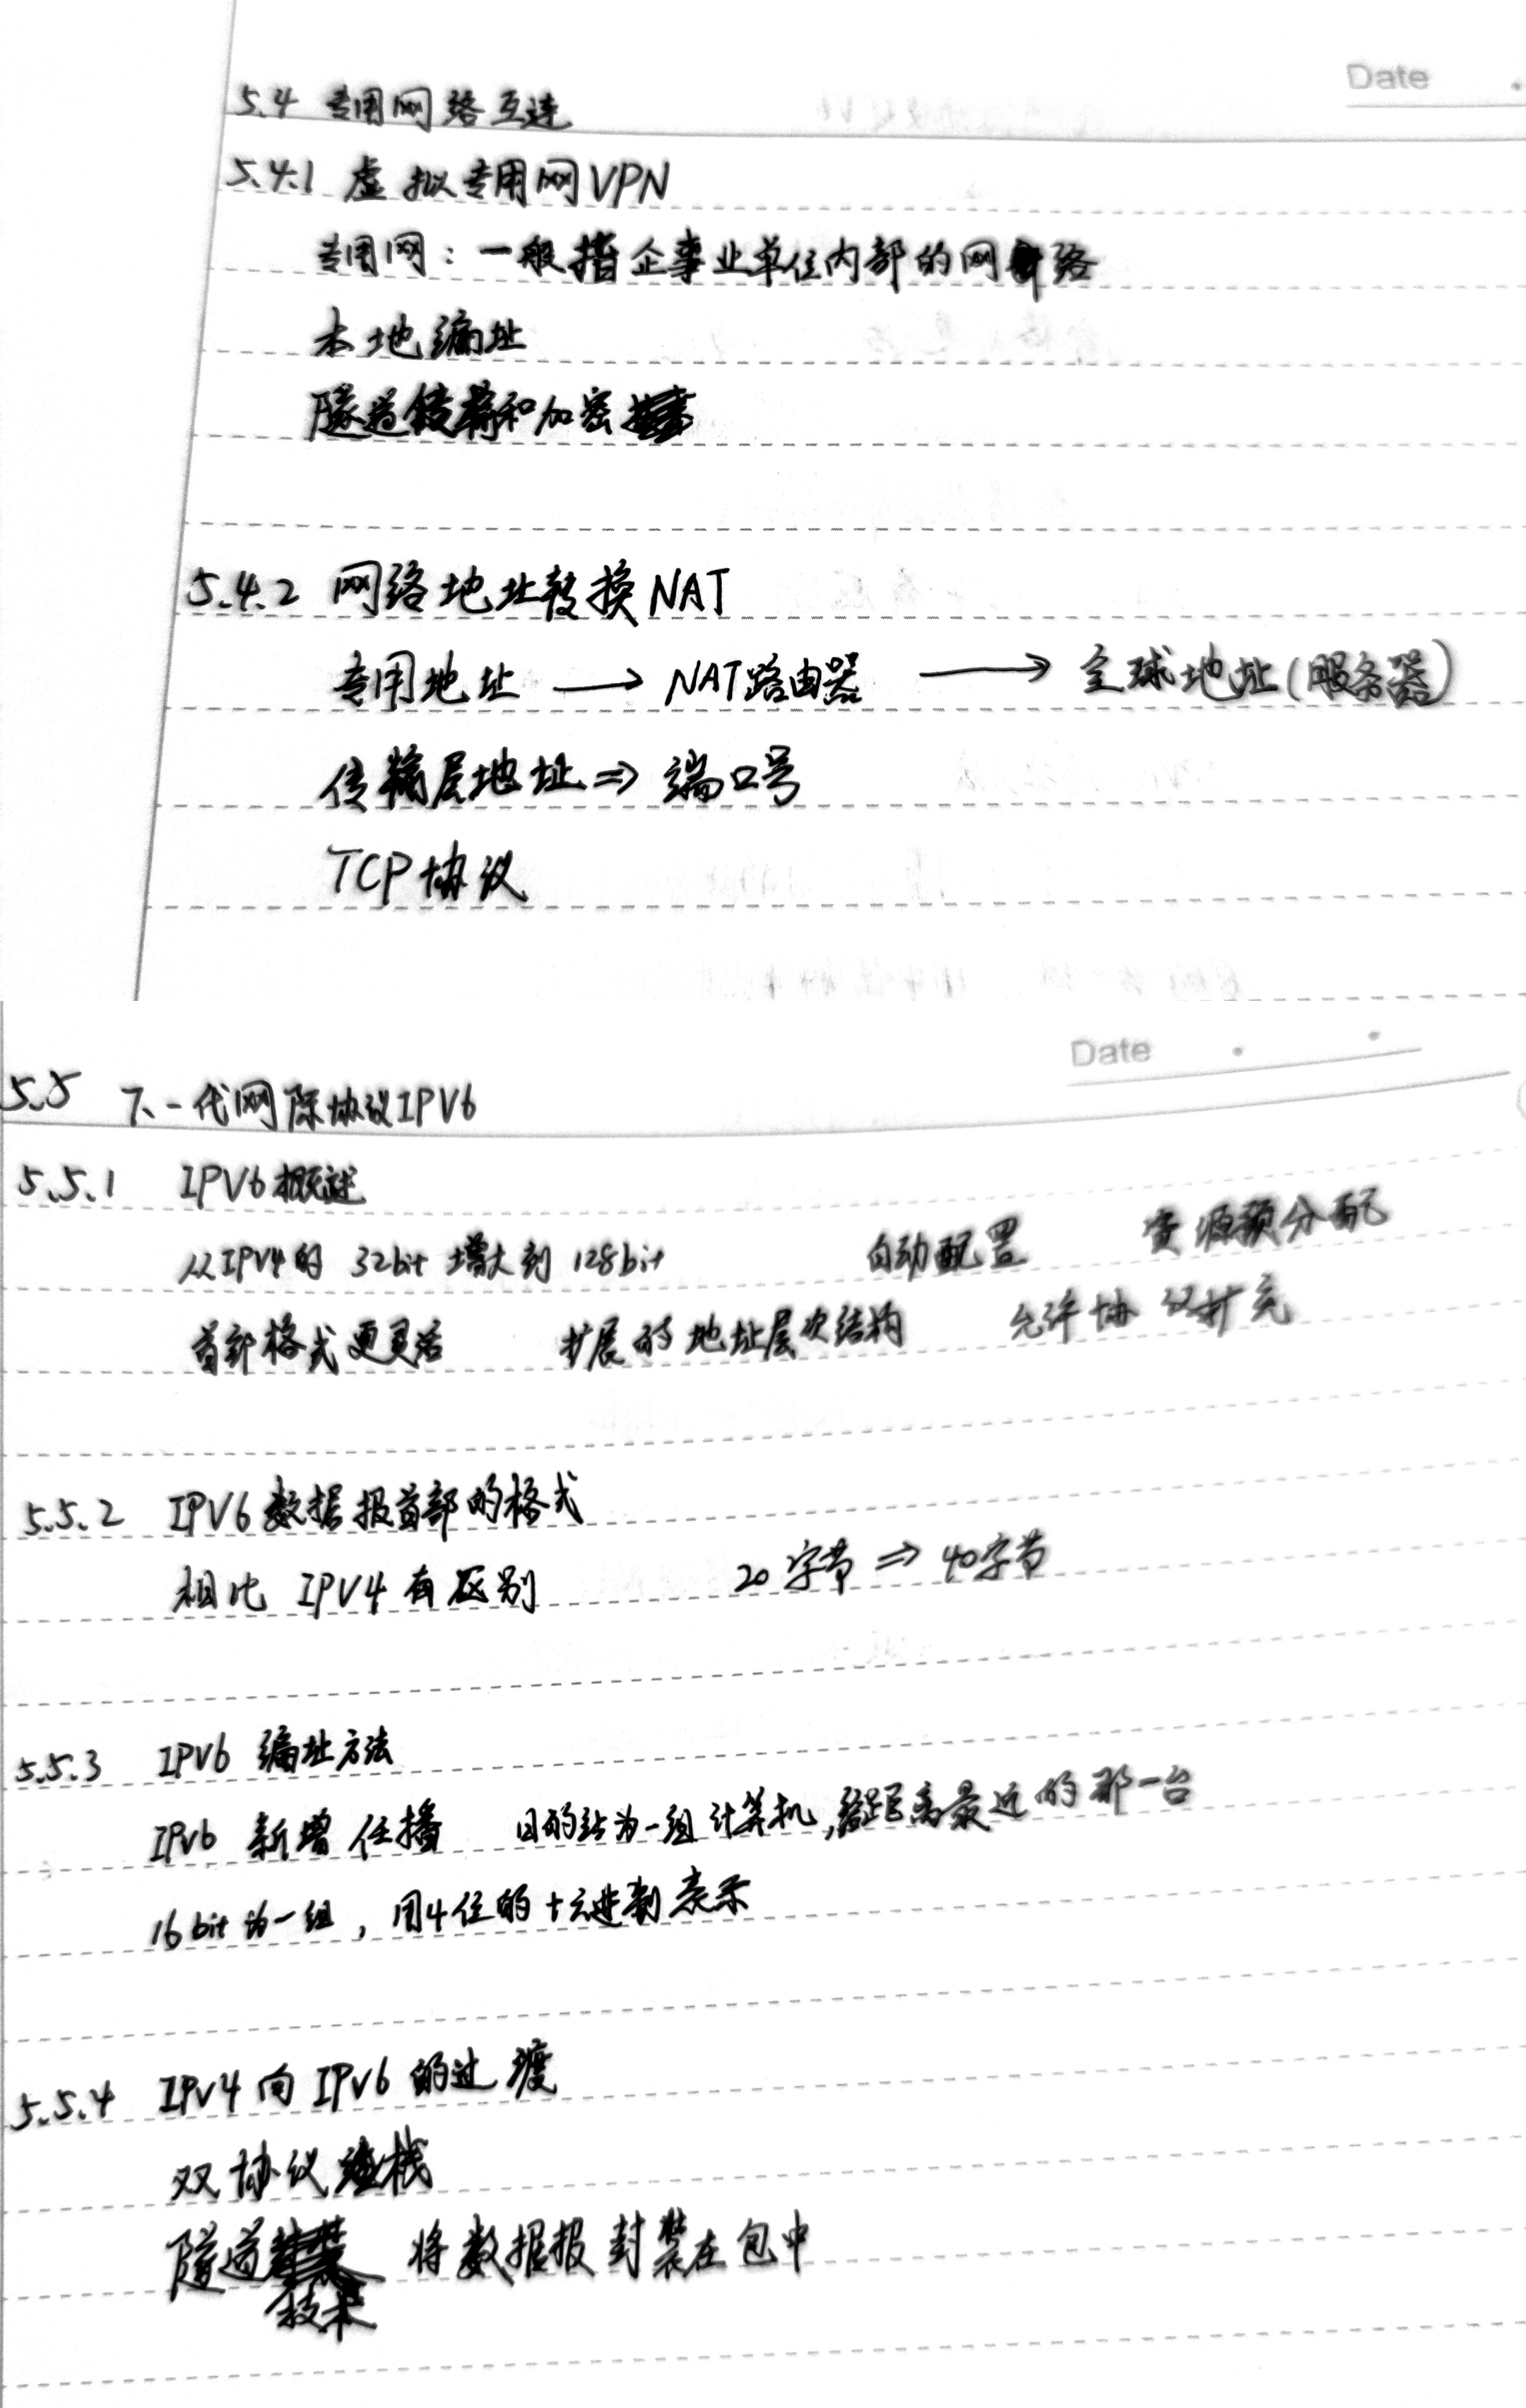 Date
5.4 专用网络互连
5.4.1 虚拟专用网VPN
专用网：一般指企事业单位内部的网络
本地编址
隧道传输和加密
5.4.2 网络地址转换NAT
专用地址 → NAT路由器 → 全球地址(服务器)
传输层地址 => 端口号
TCP协议
Date
5.5 下一代网际协议IPV6
5.5.1 IPV6概述
从IPV4的 32bit 增大到 128bit 自动配置 资源预分配
首部格式更灵活 扩展的地址层次结构 允许协议扩充
5.5.2 IPV6数据报首部的格式
相比 IPV4有区别 20字节 => 40字节
5.5.3 IPV6 编址方法
IPV6 新增任播 目的站为一组计算机,给距离最近的那一台
16bit为一组，用4位的十六进制表示
5.5.4 IPV4向IPV6的过渡
双协议栈
隧道 将数据报封装在包中
技术